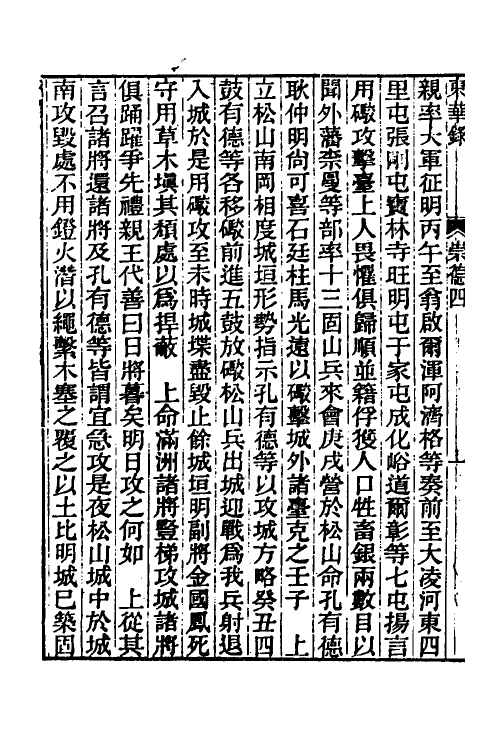 東華錄 崇德四 一
親率大軍征明丙午至翁啟爾渾阿濟格等奏前至大凌河東四
里屯張剛屯寶林寺旺明屯于家屯成化峪道爾彰等七屯揚言
用礮攻擊臺上人畏懼俱歸順並籍俘獲人口牲畜銀兩數目以
聞外藩柰曼等部率十三固山兵來會庚戌營於松山命孔有德
耿仲明尚可喜石廷柱馬光遠以礮擊城外諸臺克之壬子 上
立松山南岡相度城垣形勢指示孔有德等以攻城方略癸丑四
鼓有德等各移礮前進五鼓放礮松山兵出城迎戰爲我兵射退
入城於是用礮攻至未時城堞盡毀止餘城垣明副將金國鳳死
守用草木塡其頹處以爲捍蔽 上命滿洲諸將豎梯攻城諸將
俱踊躍爭先禮親王代善曰日將暮矣明日攻之何如 上從其
言召諸將還諸將及孔有德等皆謂宜急攻是夜松山城中於城
南攻毀處不用鐙火潛以繩繫木塞之覆之以土比明城已築固